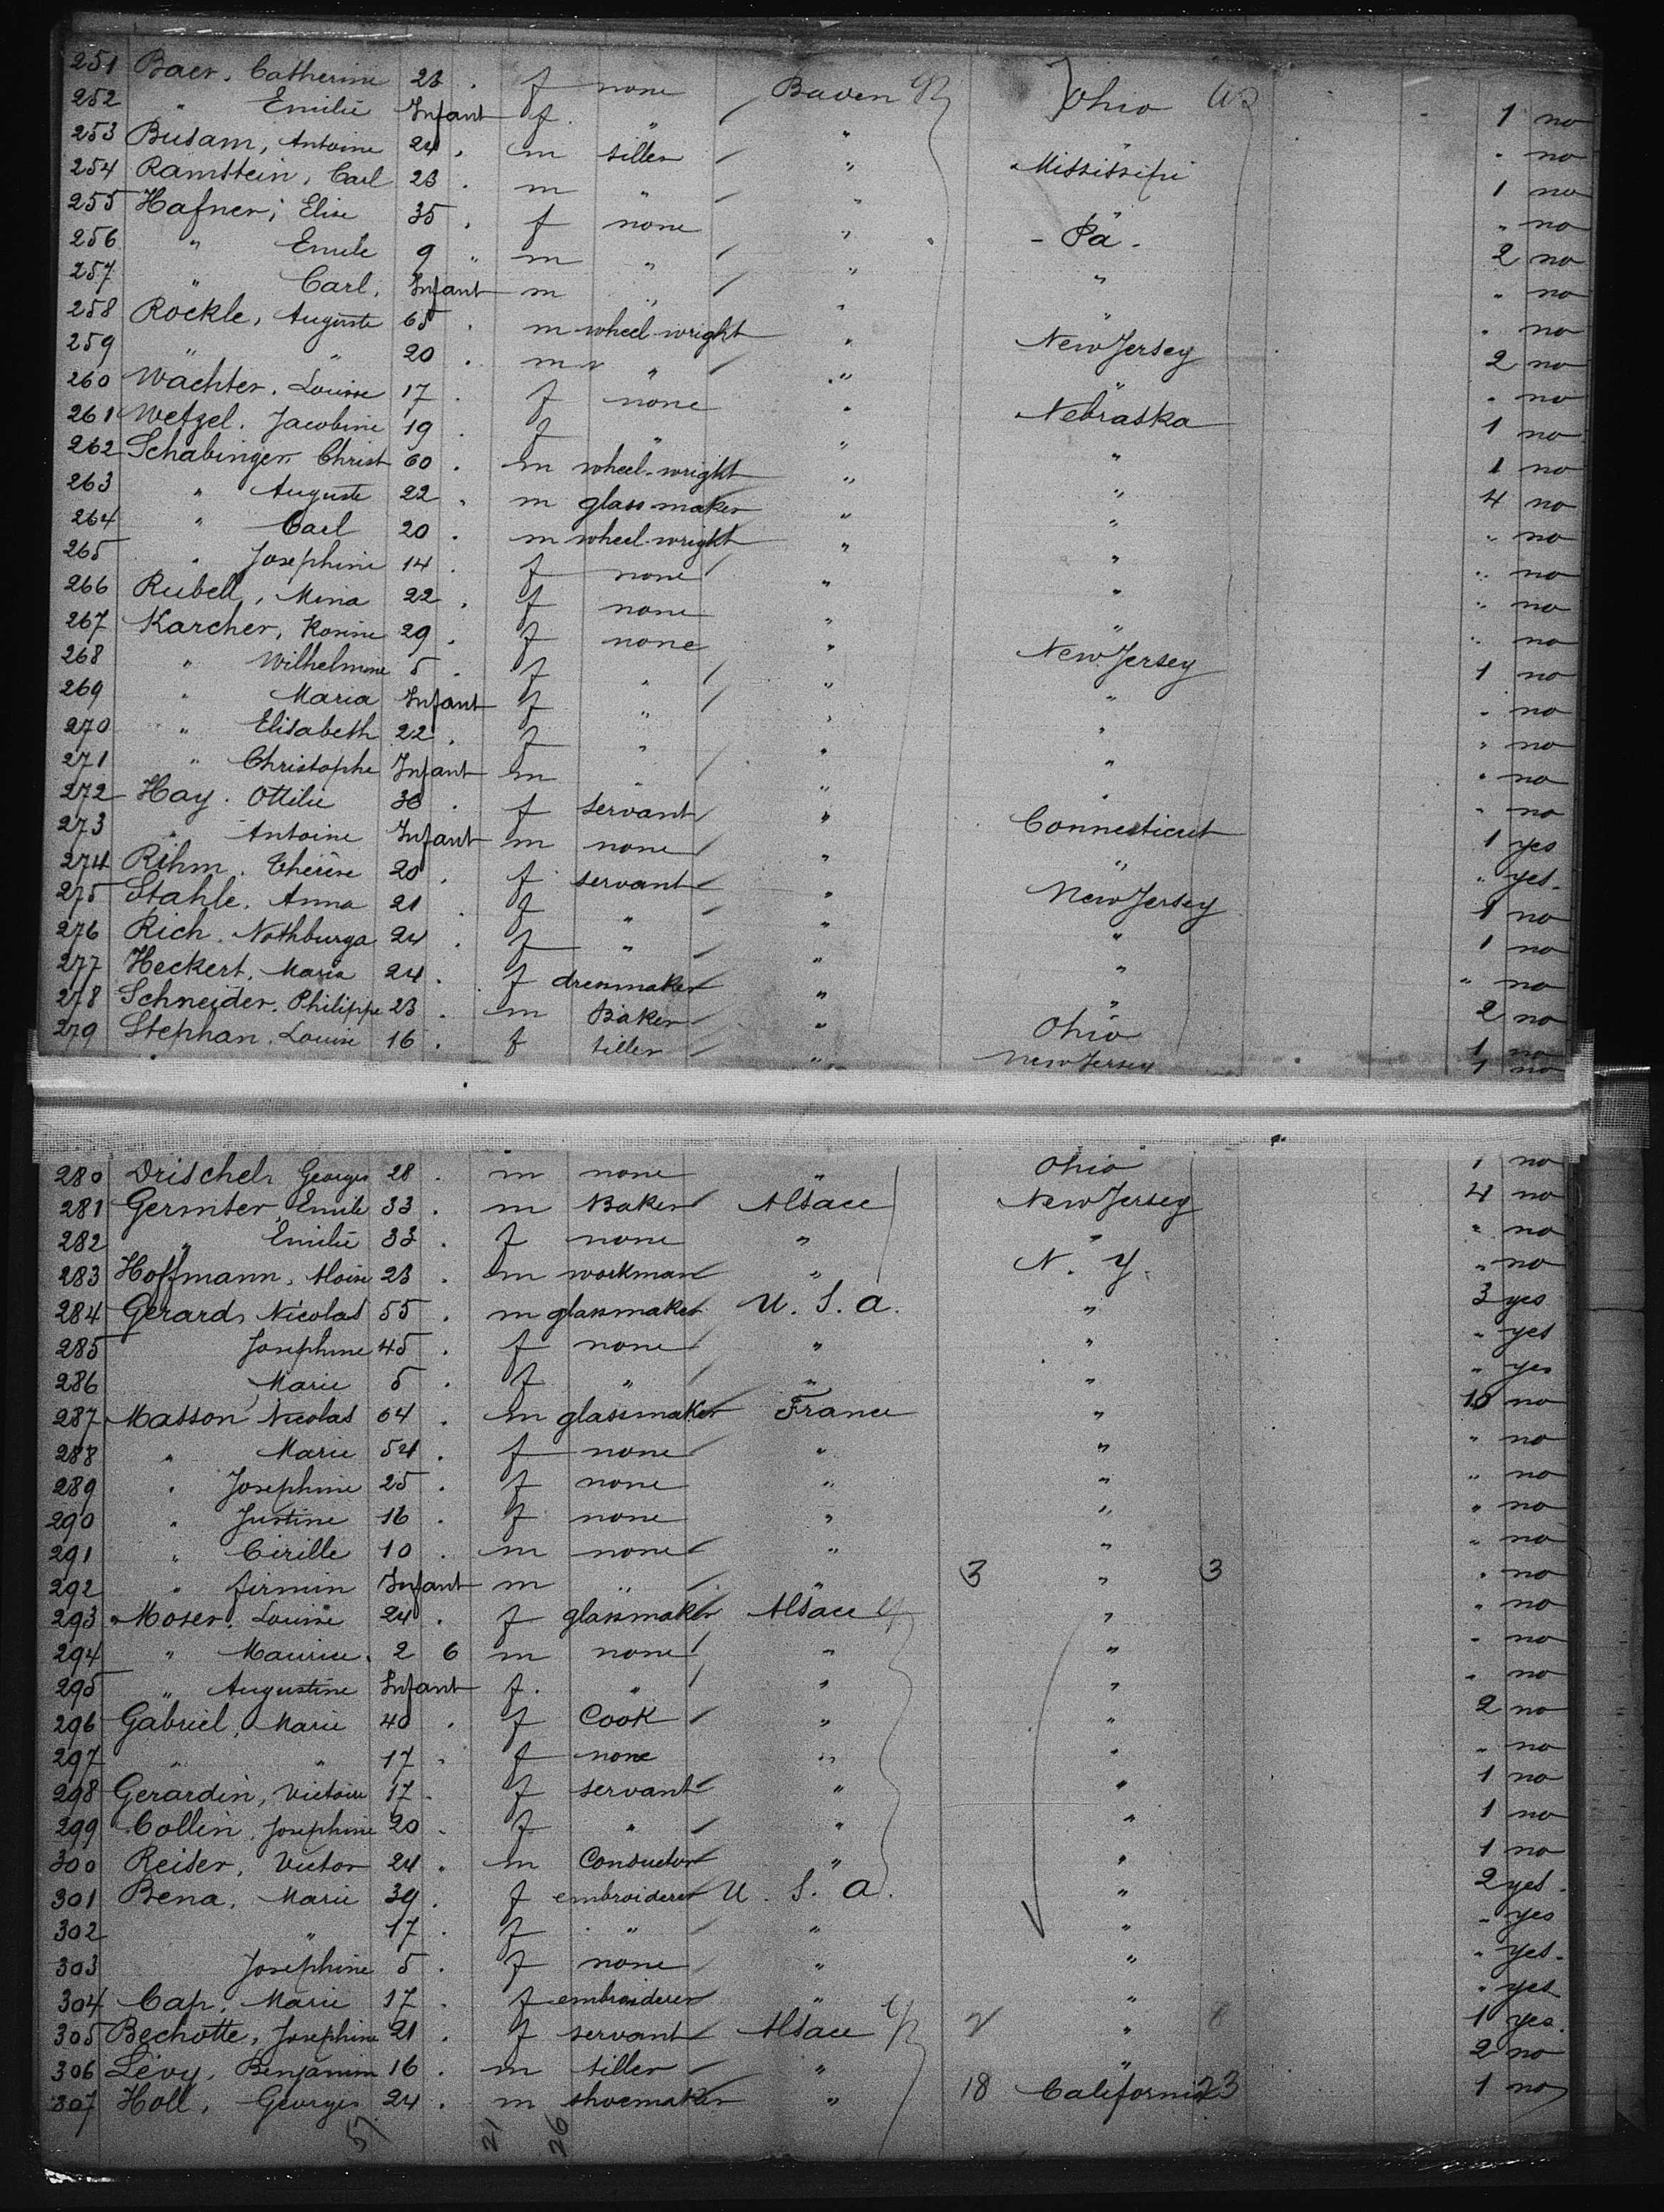 251 Baer, Catherine 23 f none Baden Ohio
252 " Emilie Infant f. " " " 1 no
253 Busam, Antoine 24 m tiller " Mississipi " no
254 Ramstein, Carl 23 m " " " 1 no
255 Hafner, Elise 35 f none " - Pa - " no
256 " Emile 9 m " " " 2 no
257 " Carl, Infant m " " " " no
258 Rockle, Auguste 65 m wheel-wright " New Jersey " no
259 " " 20 m " " " 2 no
260 Wachter, Louise 17 f none " Nebraska " no
261 Wetzel, Jacobine 19 f " " " 1 no
262 Schabinger Christ 60 m wheel-wright " " 1 no
263 " Auguste 22 m glass-maker " " 4 no
264 " Carl 20 m wheel-wright " " " no
265 " Josephine 14 f none " " " no
266 Rubell, Mina 22 f none " " " no
267 Karcher, Rosine 29 f none " New Jersey " no
268 " Wilhelmine 5 f " " " 1 no
269 " Maria Infant f " " " " no
270 " Elisabeth 22 f " " " " no
271 " Christophe Infant m " " " " no
272 Hay, Ottilie 36 f servant " Connecticut " no
273 " Antoine Infant m none " " 1 yes
274 Rihm, Therese 20 f servant " New Jersey " yes
275 Stahle, Anna 21 f " " " 1 no
276 Rich, Nothburga 24 f " " " 1 no
277 Heckert, Maria 24 f dressmaker " " " no
278 Schneider, Philippe 23 m Baker " Ohio 2 no
279 Stephan, Louise 16 f tiller " New Jersey 1 no
1 no
280 Drischel, Georges 28 m none " Ohio 1 no
281 Germter, Emile 33 m Baker Alsace New Jersey 4 no
282 " Emilie 33 f none " " " no
283 Hoffmann, Aloise 23 m workman " N. Y. " no
284 Gerard, Nicolas 55 m glassmaker U. S. A. " 3 yes
285 Josephine 45 f none " " " yes
286 Marie 5 f " " " " yes
287 Masson Nicolas 64 m glassmaker France " 10 no
288 " Marie 54 f none " " " no
289 " Josephine 25 f none " " " no
290 " Justine 16 f none " " " no
291 " Cirille 10 m none " " " no
292 " Firmin Infant m " " 3 " 3 " no
293 Moser, Louise 24 f glassmaker Alsace " " no
294 " Maurice 2 6 m none " " " no
295 " Augustine Infant f. " " " " no
296 Gabriel, Marie 40 f Cook " " 2 no
297 " " 17 f none " " " no
298 Gerardin, Victoire 17 f servant " " 1 no
299 Collin, Josephine 20 f " " " 1 no
300 Reiser, Victor 24 m Conductor " " 1 no
301 Bena, Marie 39 f embroiderer U. S. A. " 2 yes
302 " 17 f " " " " yes
303 Josephine 5 f none " " " yes
304 Cap, Marie 17 f embroiderer " " " yes
305 Bechotte, Josephine 21 f servant Alsace " 1 yes
306 Lévy, Benjamin 16 m tiller " " 2 no
307 Holl, Georges 24 m shoemaker " 18 California 23 1 no
57 21 26